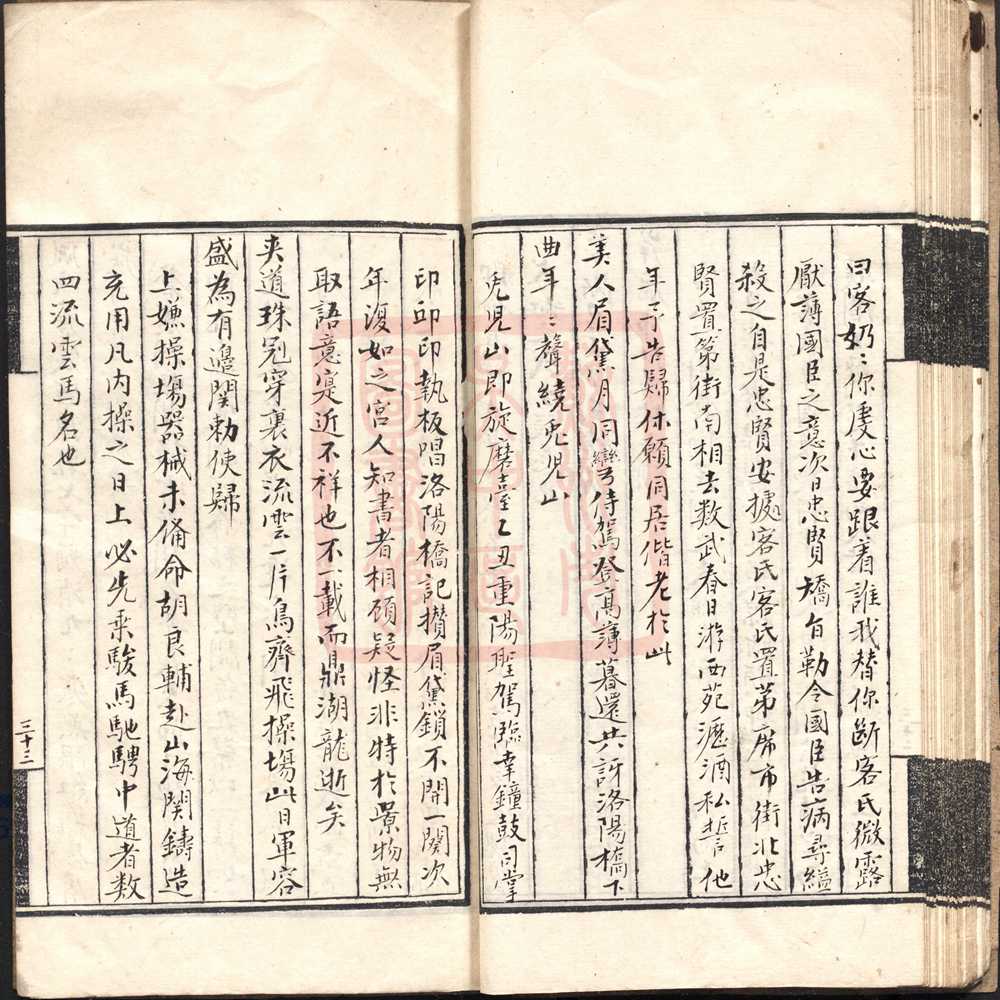 曰客奶〻你虔心要跟着誰我替你斷客氏微露
厭薄國臣之意次日忠賢矯旨勒令國臣告病尋縊
殺之自是忠賢安據客氏客氏置第席市街北忠
賢置第街南相去数武春日游西苑瀝酒私誓他
年予告歸休願同居偕老於此
美人眉黛月同彎侍駕登高薄暮還共訝洛陽橋下
曲年〻聲繞兎児山
兎児山即旋磨臺乙丑重陽聖駕臨幸鐘鼓司掌
印邱印執板唱洛陽橋記攢眉黛鎖不開一闋次
年復如之宮人知書者相顧疑怪非特於景物無
取語意寔近不祥也不一載而鼎湖龍逝矣
夾道珠冠穿裏衣流雲一片鳥齊飛操塲此日軍容
盛為有邉関勅使歸
上嫌操塲器械未偹命胡良輔赴山海関鑄造
充用凡内操之日上必先乘駿馬馳騁中道者数
四流雲馬名也
三十三